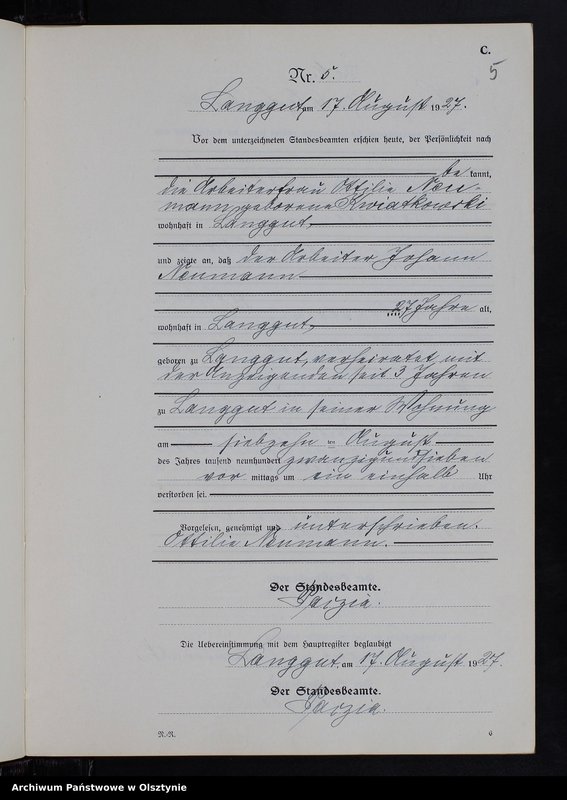 C.
5
Nr. 5.
Langgut, am 17. August 1927.
Vor dem unterzeichneten Standesbeamten erschien heute, der Persönlichkeit nach
be kannt,
die Arbeiterfrau Ottilie Neu-
mann geborene Kwiatkowski
wohnhaft in Langgut,
und zeigte an, daß der Arbeiter Johann
Neumann
27 Jahre alt,
wohnhaft in Langgut,
geboren zu Langgut, verheiratet mit
der Anzeigenden seit 3 Jahren
zu Langgut in seiner Wohnung
am siebzehn ten August
des Jahres tausend neunhundert zwanzigundsieben
vor mittags um ein einhalb Uhr
verstorben sei.
Vorgelesen, genehmigt und unterschrieben.
Ottilie Neumann.
Der Standesbeamte.
Die Uebereinstimmung mit dem Hauptregister beglaubigt
Langgut, am 17. August 1927.
Der Standesbeamte.
N.-R.
6
Archiwum Państwowe w Olsztynie